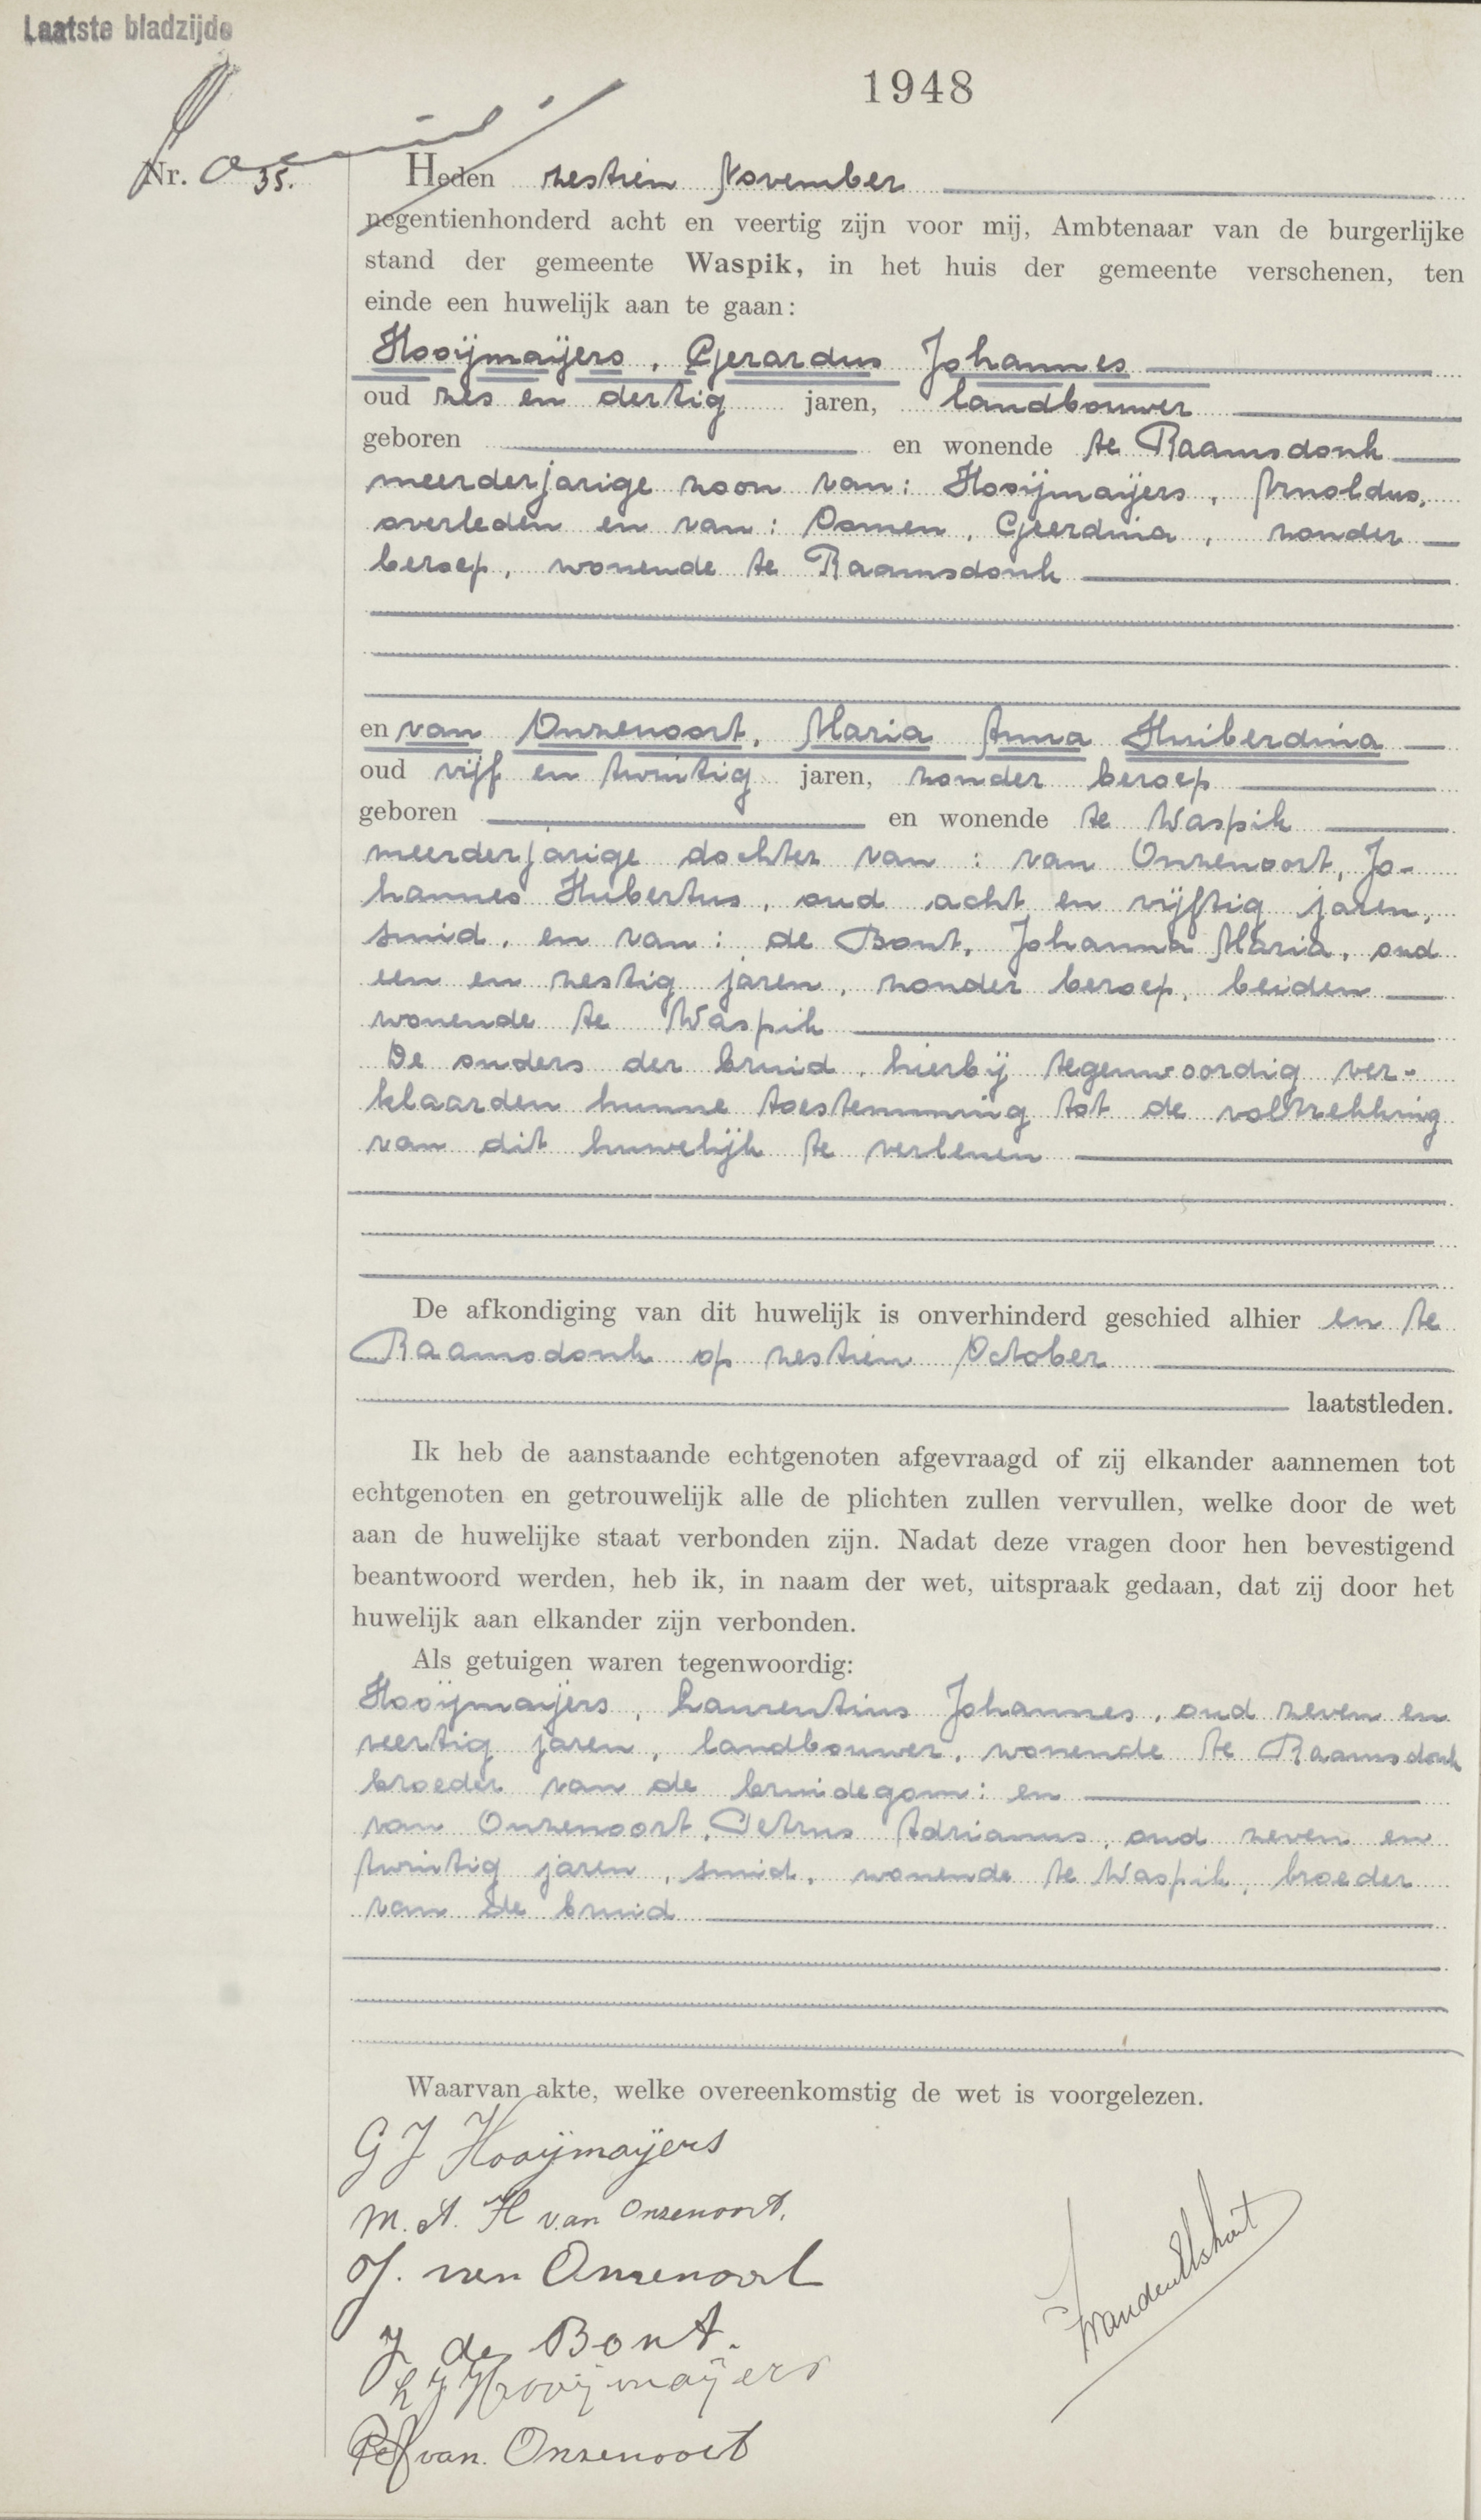 Laatste bladzijde
1948
Nr. 35.
Heden zestien November
negentienhonderd acht en veertig zijn voor mij, Ambtenaar van de burgerlijke
stand der gemeente Waspik, in het huis der gemeente verschenen, ten
einde een huwelijk aan te gaan:
Hooijmaijers, Gerardus Johannes
oud zes en dertig jaren, landbouwer
geboren en wonende te Raamsdonk
meerderjarige zoon van: Hooijmaijers, Arnoldus,
overleden en van: Oomen, Geerdina, zonder
beroep, wonende te Raamsdonk
en van Onzenoort, Maria Anna Huiberdina
oud vijf en twintig jaren, zonder beroep
geboren en wonende te Waspik
meerderjarige dochter van: van Onzenoort, Jo-
hannes Hubertus, oud acht en vijftig jaren,
smid, en van: de Bont, Johanna Maria, oud
een en zestig jaren, zonder beroep, beiden
wonende te Waspik
De ouders der bruid, hierbij tegenwoordig ver-
klaarden hunne toestemming tot de voltrekking
van dit huwelijk te verlenen
De afkondiging van dit huwelijk is onverhinderd geschied alhier en te
Raamsdonk op zestien October
laatstleden.
Ik heb de aanstaande echtgenoten afgevraagd of zij elkander aannemen tot
echtgenoten en getrouwelijk alle de plichten zullen vervullen, welke door de wet
aan de huwelijke staat verbonden zijn. Nadat deze vragen door hen bevestigend
beantwoord werden, heb ik, in naam der wet, uitspraak gedaan, dat zij door het
huwelijk aan elkander zijn verbonden.
Als getuigen waren tegenwoordig:
Hooijmaijers, Laurentius Johannes, oud zeven en
veertig jaren, landbouwer, wonende te Raamsdonk
broeder van de bruidegom: en
van Onzenoort, Petrus Adrianus, oud zeven en
twintig jaren, smid, wonende te Waspik, broeder
van de bruid
Waarvan akte, welke overeenkomstig de wet is voorgelezen.
G J Hooijmayers
M. A. H van Onzenoort.
J. van Onzenoort
J de Bont.
L J Hooijmayers
van Onzenoort